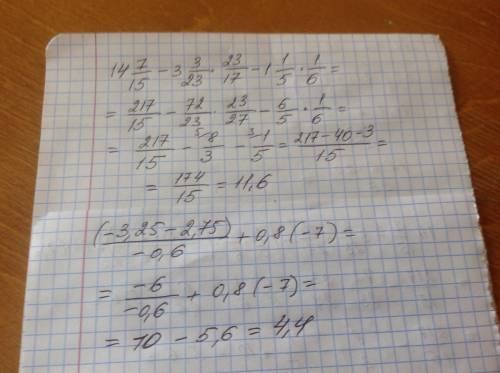 14 7/15 - 3 3/23 · 23/17 - 1 1/5 · 1/6 =
= 217/15 - 72/23 · 23/27 - 6/5 · 1/6 =
= 217/15 - 5 8/3 - 3 1/5 = 217-40-3/15 =
= 174/15 = 11,6
(-3,25-2,75)/-0,6 + 0,8(-7) =
= -6/-0,6 + 0,8(-7) =
= 10 - 5,6 = 4,4